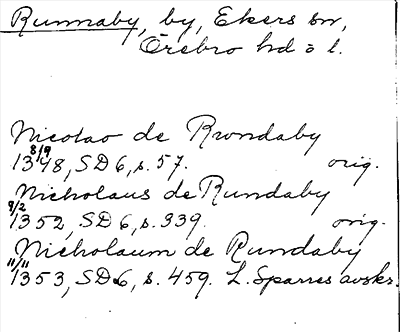 Runnaby, by, Ekers sn,
Örebro hd o l.
Nicolao de Rwndaby
8/9
1348, SD 6, s. 57. orig.
Nicholaus de Rundaby
9/2
1352, SD 6, s. 339. orig.
Nicholaum de Rundaby
11/11
1353, SD 6, s. 459. L. Sparres avskr.